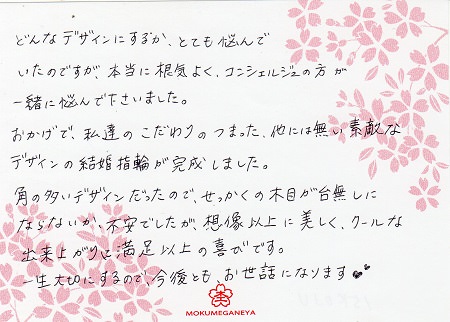 どんなデザインにするか、とても悩んで
いたのですが、本当に根気よく、コンシェルジュの方が
一緒に悩んで下さいました。
おかげで、私達のこだわりのつまった、他には無い素敵な
デザインの結婚指輪が完成しました。
角の多いデザインだったので、せっかくの木目が台無しに
ならないか、不安でしたが、想像以上に美しく、クールな
出来上がりに満足以上の喜びです。
一生大切にするので、今後とも、お世話になります
MOKUMEGANEYA